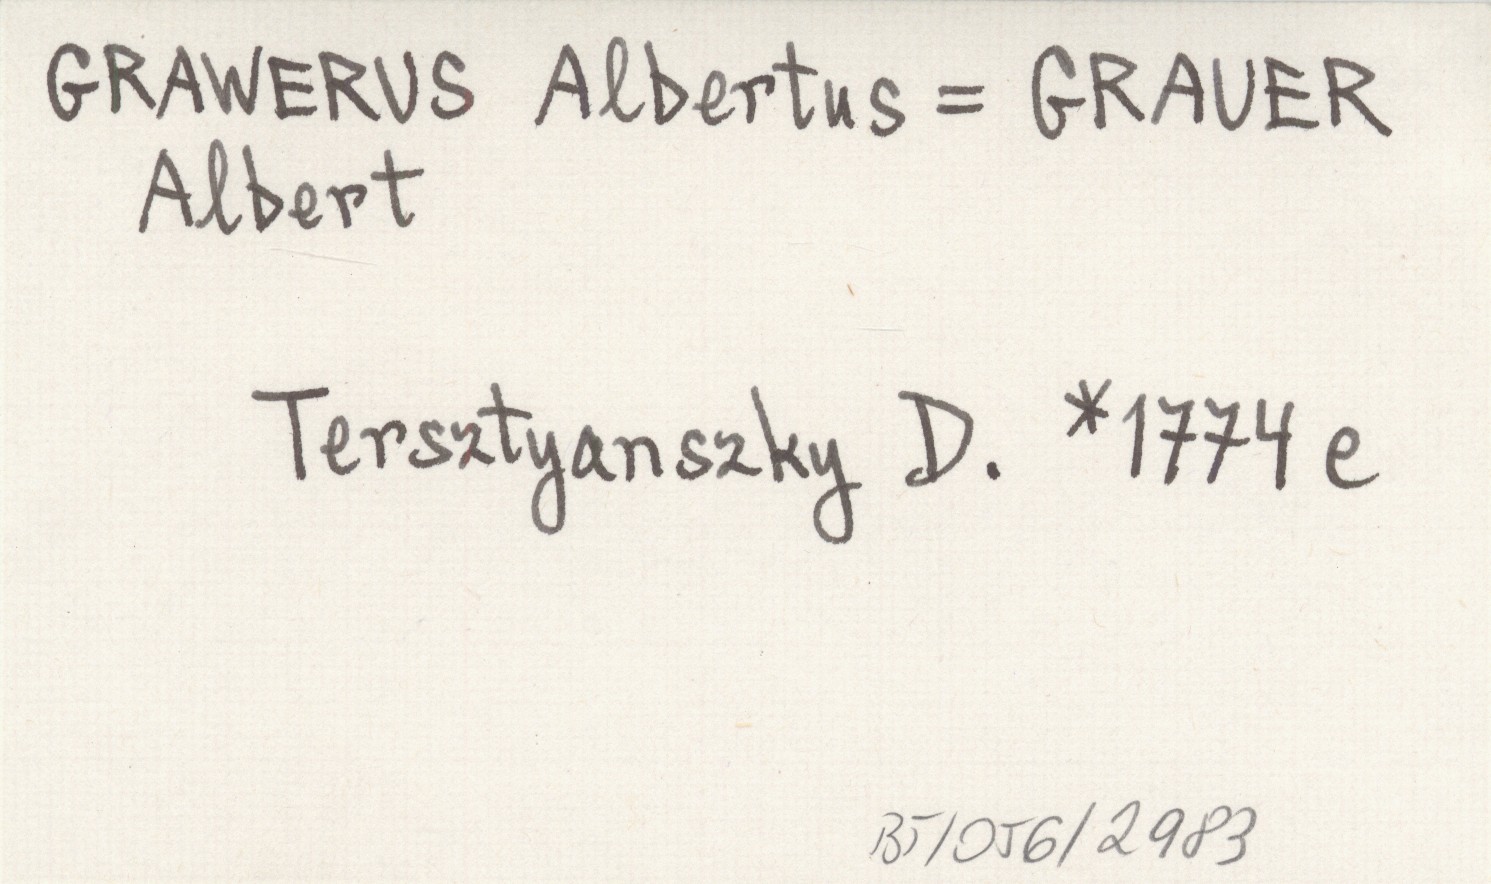 GRAWERUS Albertus = GRAUER
Albert
Tersztyanszky D. *1774 e
BJ/OJ6/2983